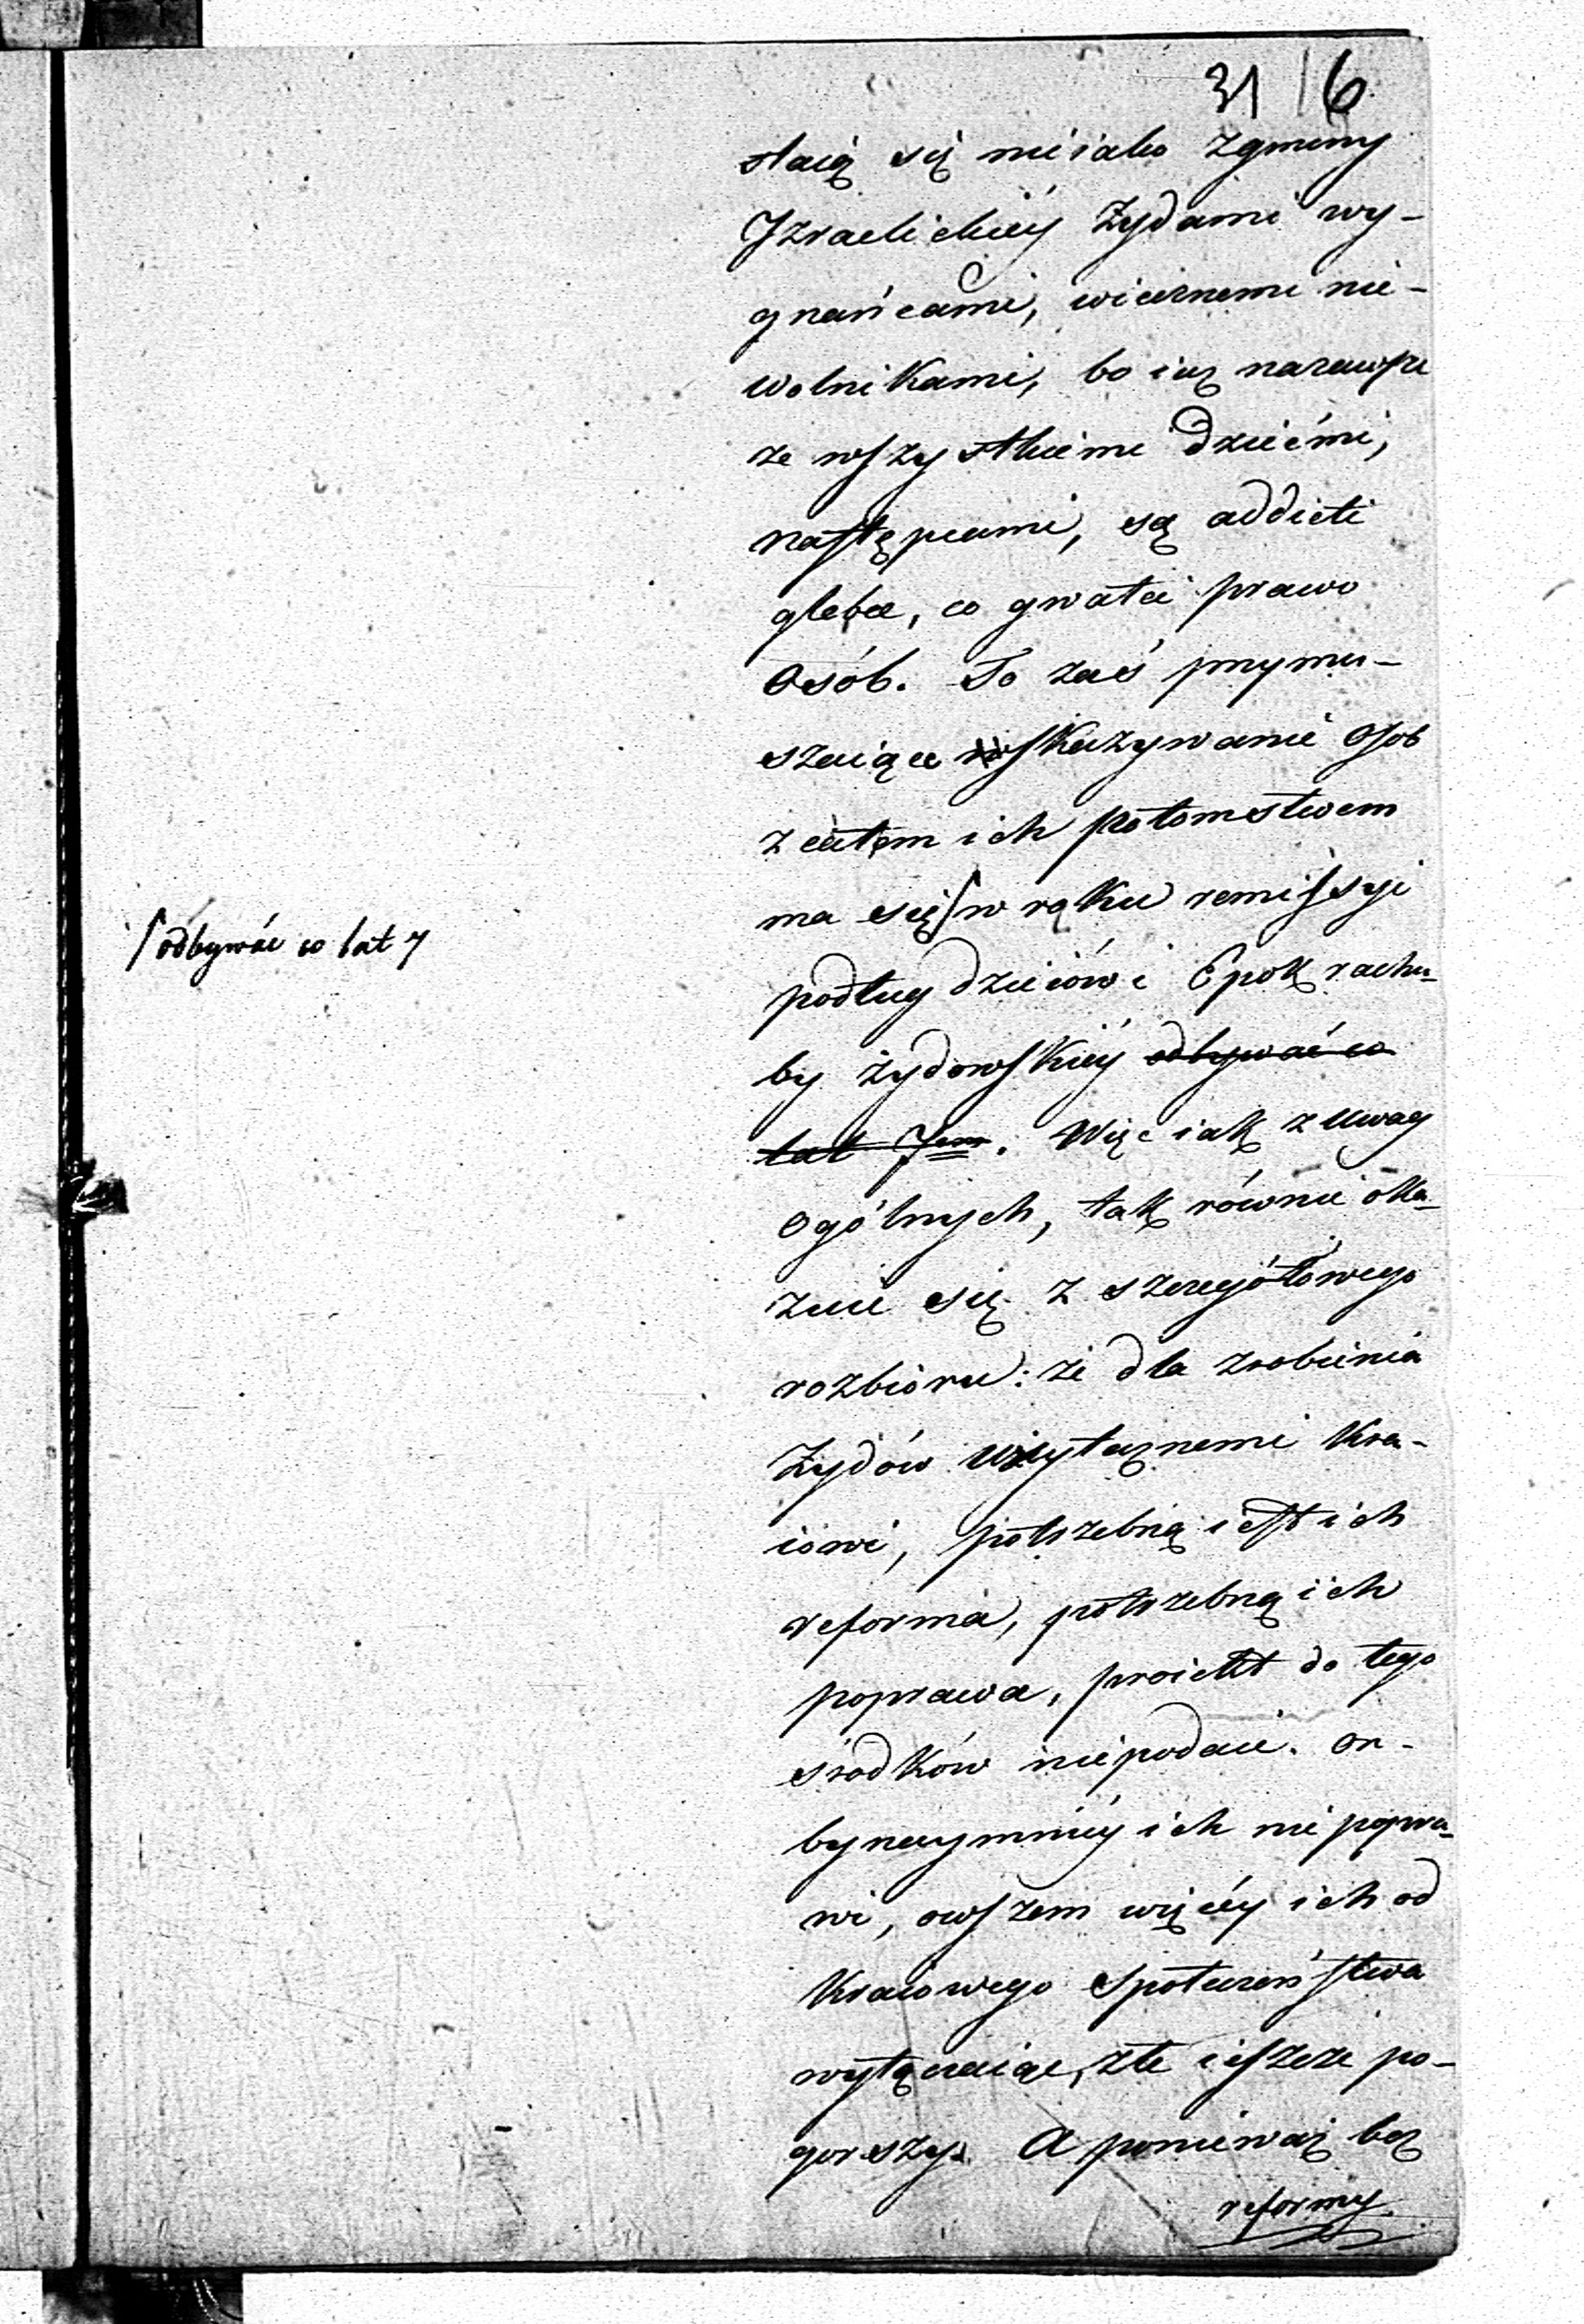 31 | 6
staią się nie iako z gminy
Izraelickiéy Żydami wy-
gnańcami, wiecznemi nie-
wolnikami, bo iuż nazawsze
ze wszystkiemi dziećmi,
następcami, są addicti
glebæ, co gwałci prawo
Osób. To zaś przymu-
szaiące wskazywanie Osób
z całem ich potomstwem
ma się / w roku remissyi
/ odbywać co lat 7
podług dzieiów i Epok rachu-
by żydowskiéy odbywać co
lat 7em. Więc iak z uwag
ogólnych, tak równie oka-
zuie się z szczegółowego
rozbioru: że dla zrobienia
Żydów użytecznemi Kra-
iowi, potrzebną iest ich
reforma, potrzebną ich
poprawa, proiekt do tego
środków niepodaie. On-
bynaymniéy ich nie popra-
wi, owszem więcéy ich od
Kraiowego Społeczeństwa
wyłączaiąc, złe ieszcze po-
gorszy. A ponieważ bez
reformy